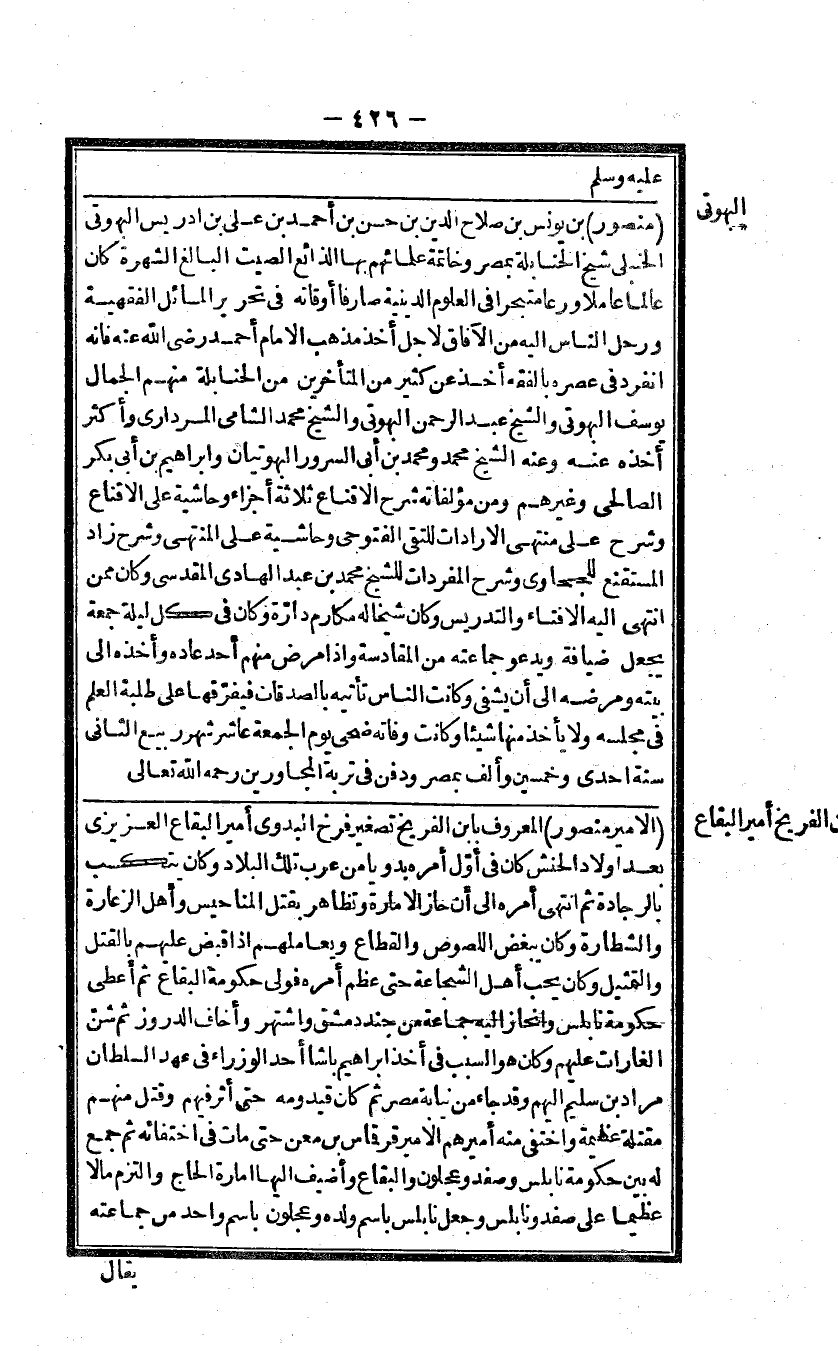 — ٤٢٦ —
عليه وسلم
البهوتى
(منصور) بن يونس بن صلاح الدين بن حسن بن أحمد بن على بن ادريس البهوتى
الحنبلى شيخ الحنابلة بمصر وخاتمة علمائهم بها الذائع الصيت البالغ الشهرة كان
عالما عاملا ورعا متبحرا فى العلوم الدينية صارفا أوقاته فى تحرير المسائل الفقهية
ورحل الناس اليه من الآفاق لاجل أخذ مذهب الامام أحمد رضى الله عنه فانه
انفرد فى عصره بالفقه أخذ عن كثير من المتأخرين من الحنابلة منهم الجمال
يوسف البهوتى والشيخ عبد الرحمن البهوتى والشيخ محمد الشامى المرداوى وأكثر
أخذه عنه وعنه الشيخ محمد ومحمد بن أبى السرور البهوتيان وابراهيم بن أبى بكر
الصالحى وغيرهم ومن مؤلفاته شرح الاقناع ثلاثة أجزاء وحاشية على الاقناع
وشرح على منتهى الارادات للتقى الفتوحى وحاشية على المنتهى وشرح زاد
المستقنع للحجاوى وشرح المفردات للشيخ محمد بن عبد الهادى المقدسى وكان ممن
انتهى اليه الافتاء والتدريس وكان شيخا له مكارم دارّة وكان فى كل ليلة جمعة
يجعل ضيافة ويدعو جماعته من المقادسة واذا مرض منهم أحد عاده وأخذه الى
بيته ومرضه الى أن يشفى وكانت الناس تأتيه بالصدقات فيفرّقها على طلبة العلم
فى مجلسه ولا يأخذ منها شيئا وكانت وفاته ضحى يوم الجمعة عاشر شهر ربيع الثانى
سنة احدى وخمسين وألف بمصر ودفن فى تربة المجاورين رحمه الله تعالى
ن الفريخ أمير البقاع
(الامير منصور) المعروف بابن الفريخ تصغير فرخ البدوى أمير البقاع العزيزى
بعد اولاد الحنش كان فى أوّل أمره بدويا من عرب تلك البلاد وكان يتكسب
بالرجادة ثم انتهى أمره الى أن حاز الامارة وتظاهر بقتل المناحيس وأهل الزعارة
والشطارة وكان يبغض اللصوص والقطاع ويعاملهم اذا قبض عليهم بالقتل
والتمثيل وكان يحب أهل الشجاعة حتى عظم أمره فولى حكومة البقاع ثم أعطى
حكومة نابلس وانحاز اليه جماعة من جند دمشق واشتهر وأخاف الدروز ثم شنّ
الغارات عليهم وكان هو السبب فى أخذ ابراهيم باشا أحد الوزراء فى عهد السلطان
مراد بن سليم اليهم وقد جاء من نيابة مصر ثم كان قيدومه حتى أثر فيهم وقتل منهم
مقتلة عظيمة واختفى منه أميرهم الامير قرقاس بن معن حتى مات فى اختفائه ثم جمع
له بين حكومة نابلس وصفد وعجلون والبقاع وأضيف اليها امارة الحاج والتزم مالا
عظيما على صفد ونابلس وجعل نابلس باسم ولده وعجلون باسم واحد من جماعته
يقال